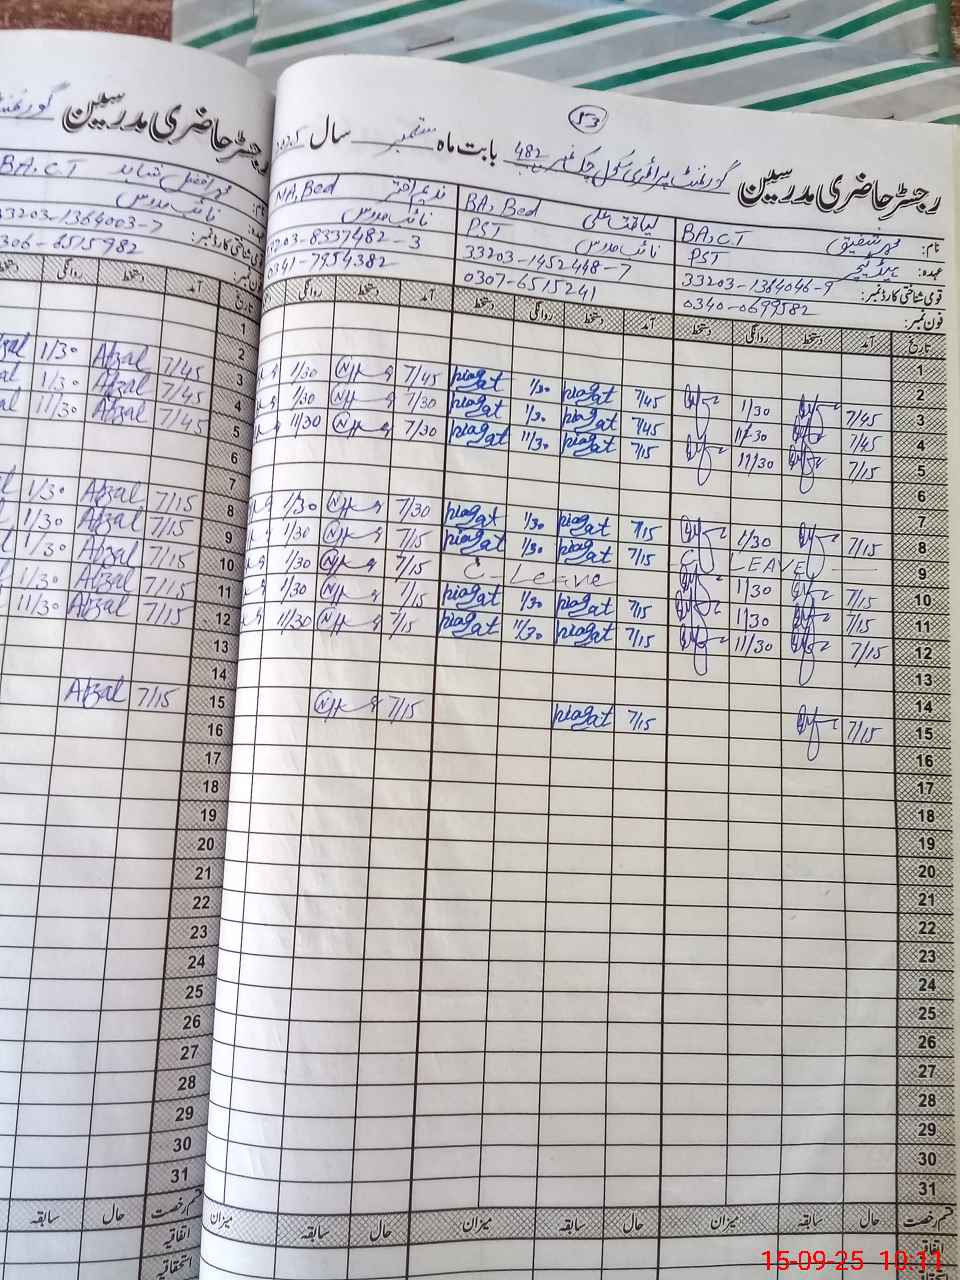 53
رجسٹر حاضری مدرسین گورنمنٹ پرائمری سکول چک نمبر 482 بابت ماہ ستمبر سال
نام: محمد شفیق BA, CT
عہدہ: ہیڈ ٹیچر PST
قومی شناختی کارڈ نمبر: 33203-1364046-9
فون نمبر: 0340-0699582
لیاقت علی BA, Bed
نائب مدرس PST
33203-1452448-7
0307-6515241
ندیم اختر MA, Bed
نائب مدرس
03-8337482-3
0341-7954382
تاریخ آمد دستخط روانگی دستخط آمد دستخط روانگی دستخط آمد دستخط روانگی
1
2
3 7/45 1/30 7/45 piaqat 1/30 piaqat 7/45 1/30
4 7/45 11/30 7/45 piaqat 1/30 piaqat 7/30 1/30
5 7/15 11/30 7/15 piaqat 11/30 piaqat 7/30 11/30
6
7
8 7/15 1/30 7/15 piaqat 1/30 piaqat 7/30 1/30
9 LEAVE 7/15 piaqat 1/30 piaqat 7/15 1/30
10 7/15 1/30 C-Leave 7/15 1/30
11 7/15 1/30 7/15 piaqat 1/30 piaqat 7/15 1/30
12 7/15 11/30 7/15 piaqat 11/30 piaqat 7/15 11/30
13
14
15 7/15 7/15 piaqat 7/15
16
17
18
19
20
21
22
23
24
25
26
27
28
29
30
31
قسم رخصت حال سابقہ میزان حال سابقہ میزان حال سابقہ میزان
اتفاقیہ
رجسٹر حاضری مدرسین
نام: محمد افضل شاہد BA, CT
عہدہ: نائب مدرس
قومی شناختی کارڈ نمبر: 33203-1364003-7
فون نمبر: 306-6515982
تاریخ آمد دستخط روانگی دستخط
1
2
3 7/45 Afzal 1/30
4 7/45 Afzal 1/30
5 7/45 Afzal 11/30
6
7
8 7/15 Afzal 1/30
9 7/15 Afzal 1/30
10 7/15 Afzal 1/30
11 7/15 Afzal 1/30
12 7/15 Afzal 11/30
13
14
15 7/15 Afzal
16
17
18
19
20
21
22
23
24
25
26
27
28
29
30
31
قسم رخصت حال سابقہ
اتفاقیہ
استحقاقیہ
15-09-25 10:11